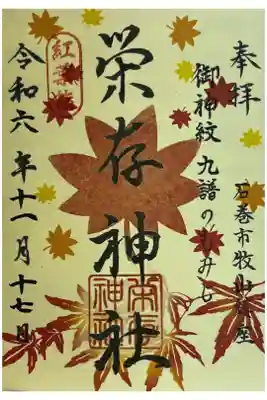 奉拝
石巻市牧山
御神紋 九譜のもみじ
栄存神社
栄存
神社
令和六年十一月十七日